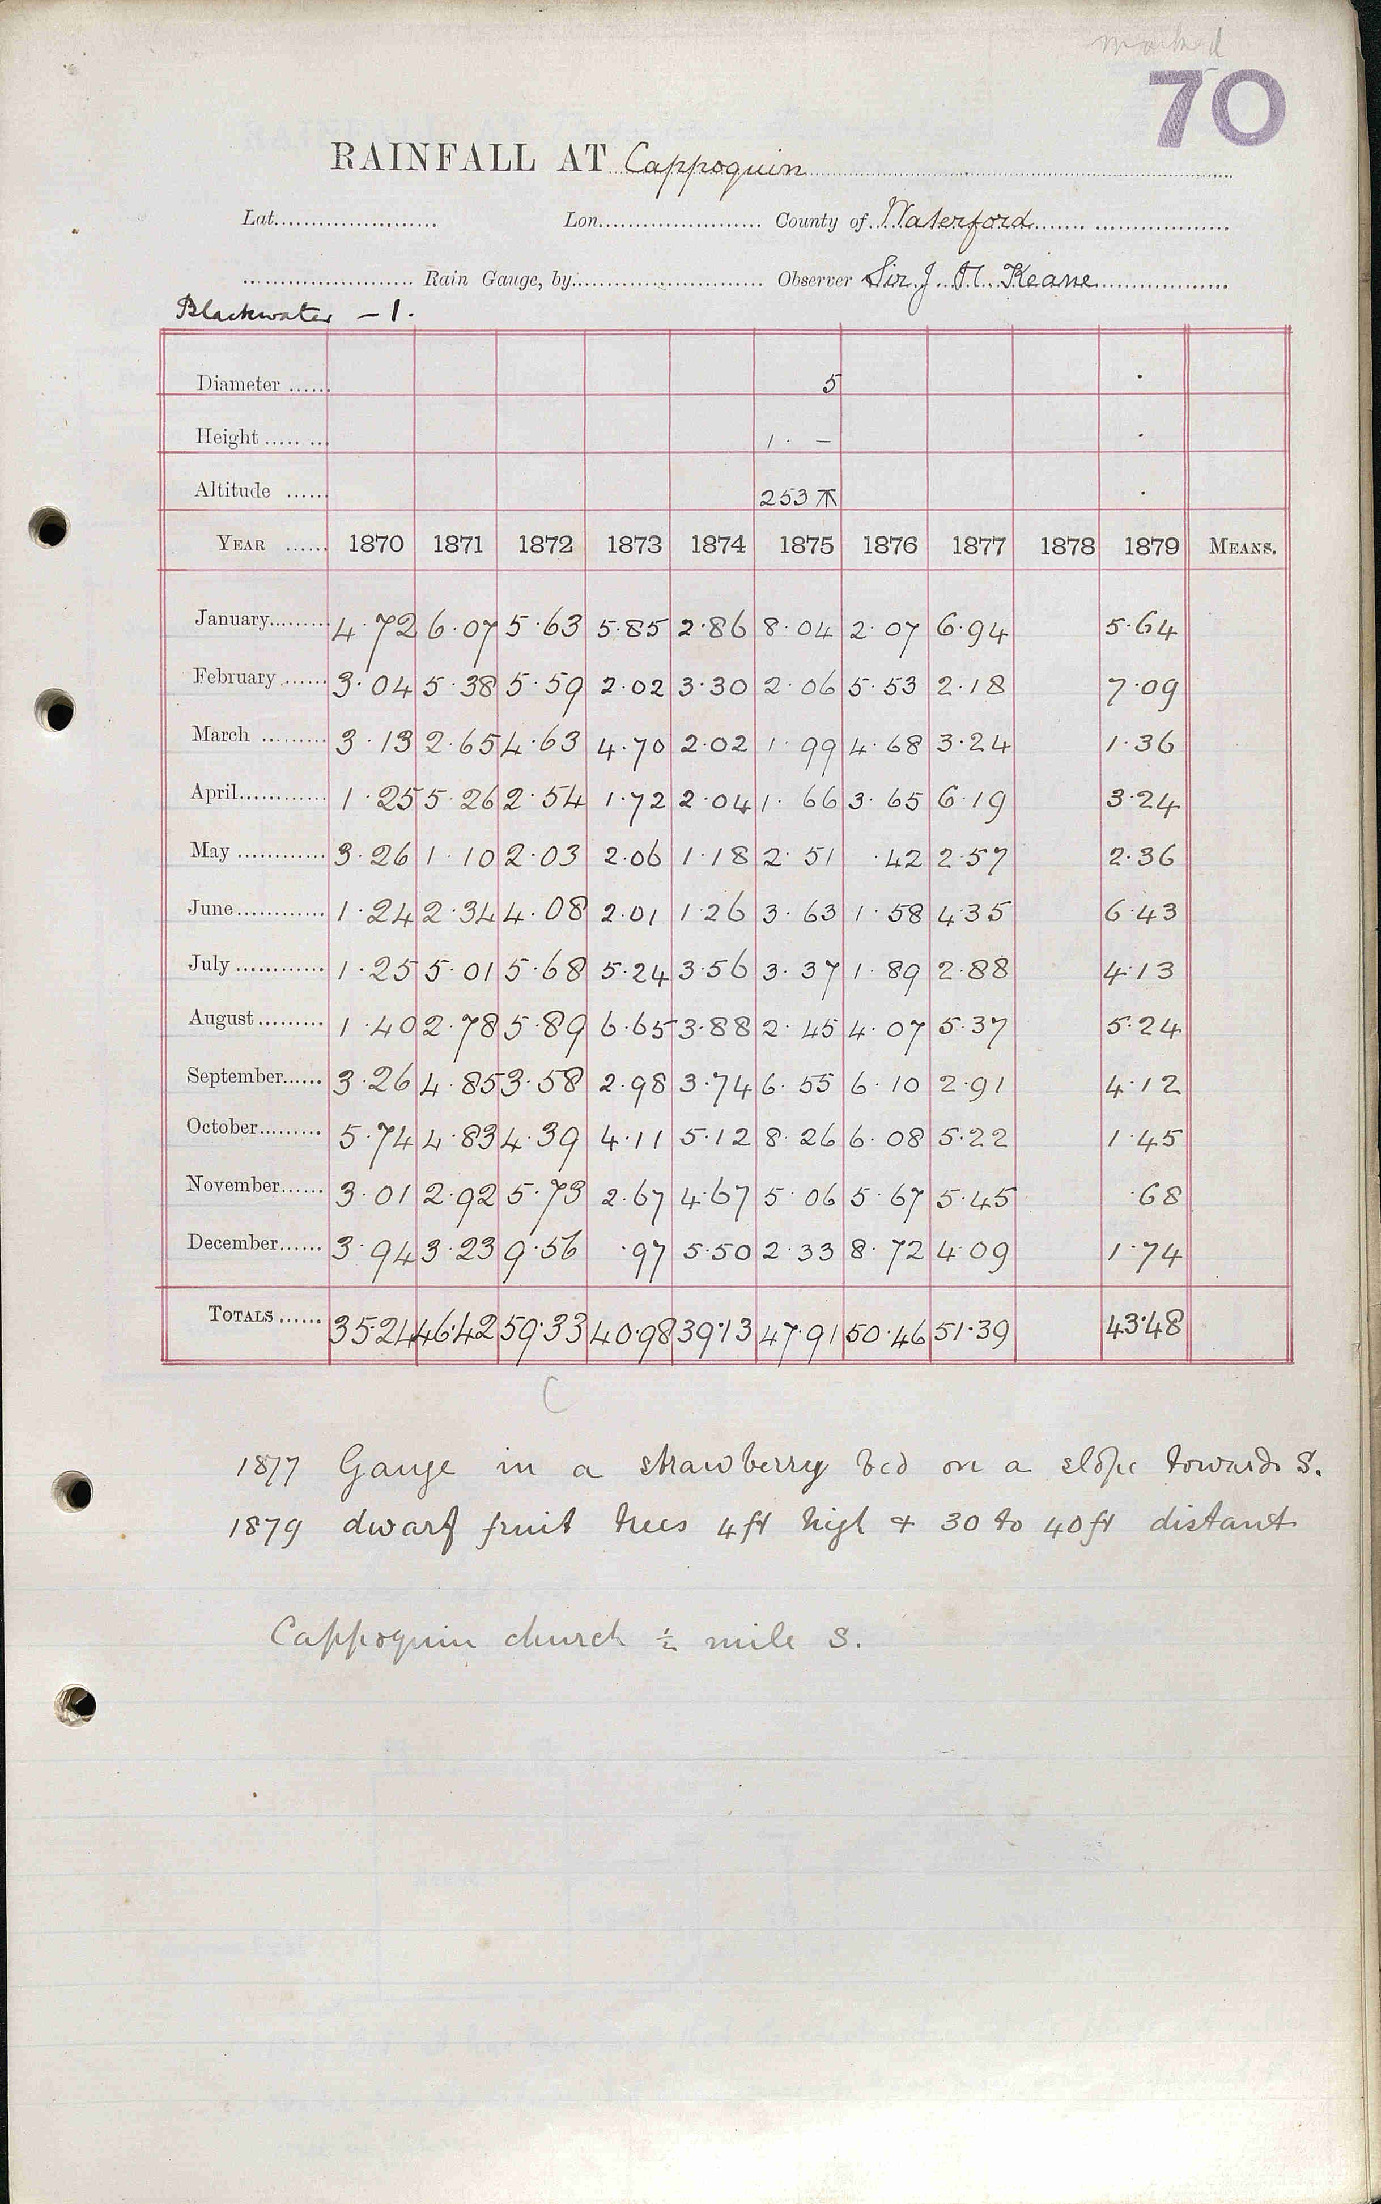 marked
70
RAINFALL AT Cappoquin
Lat. Lon. County of Waterford
Rain Gauge, by Observer Sir J H Keane
Blackwater - 1.
Diameter 5 ·
Height 1 · — ·
Altitude 253 ·
YEAR 1870 1871 1872 1873 1874 1875 1876 1877 1878 1879 MEANS.
January 4·72 6·07 5·63 5·85 2·86 8·04 2·07 6·94 5·64
February 3·04 5·38 5·59 2·02 3·30 2·06 5·53 2·18 7·09
March 3·13 2·65 4·63 4·70 2·02 1·99 4·68 3·24 1·36
April 1·25 5·26 2·54 1·72 2·04 1·66 3·65 6·19 3·24
May 3·26 1·10 2·03 2·06 1·18 2·51 ·42 2·57 2·36
June 1·24 2·34 4·08 2·01 1·26 3·63 1·58 4·35 6·43
July 1·25 5·01 5·68 5·24 3·56 3·37 1·89 2·88 4·13
August 1·40 2·78 5·89 6·65 3·88 2·45 4·07 5·37 5·24
September 3·26 4·85 3·58 2·98 3·74 6·55 6·10 2·91 4·12
October 5·74 4·83 4·39 4·11 5·12 8·26 6·08 5·22 1·45
November 3·01 2·92 5·73 2·67 4·67 5·06 5·67 5·45 ·68
December 3·94 3·23 9·56 ·97 5·50 2·33 8·72 4·09 1·74
TOTALS 35·24 46·42 59·33 40·98 39·13 47·91 50·46 51·39 43·48
C
1877 Gauge in a strawberry bed on a slope towards S.
1879 dwarf fruit trees 4ft high & 30 to 40ft distant
Cappoquin church ½ mile S.